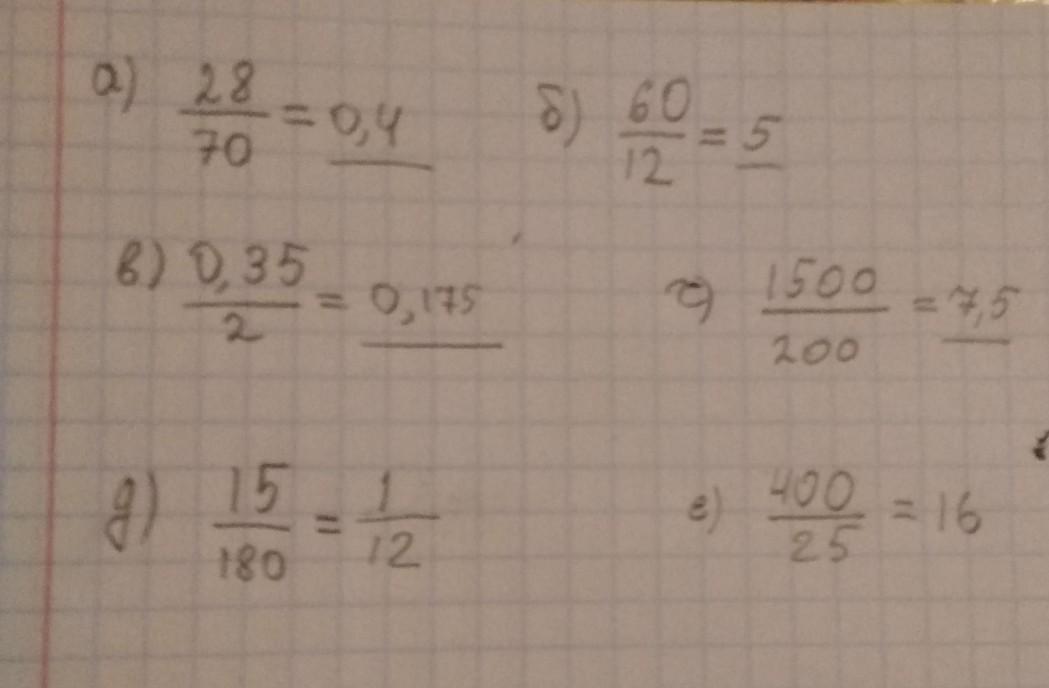 а) 28/70 = 0,4 б) 60/12 = 5
в) 0,35/2 = 0,175 г) 1500/200 = 7,5
д) 15/180 = 1/12 е) 400/25 = 16